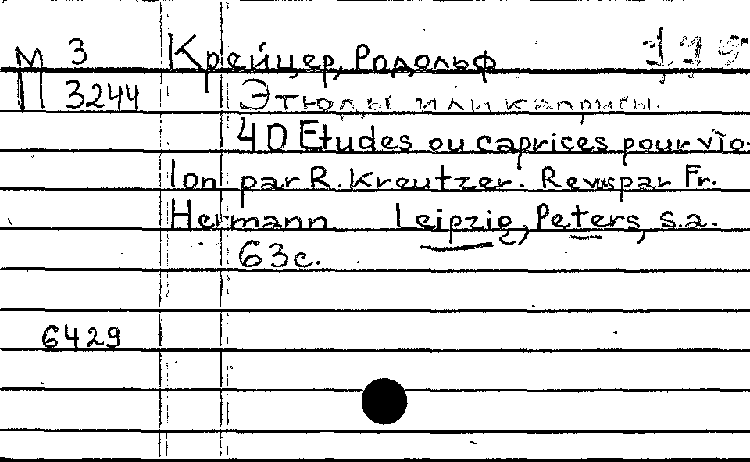 М 3 Крейцер, Родольф
П 3244 Этюды или каприсы.
40 Etudes ou caprices pour vio-
lon par R. Kreutzer. Rev. par Fr.
Hermann Leipzig, Peters, s.a.
63с.
6429